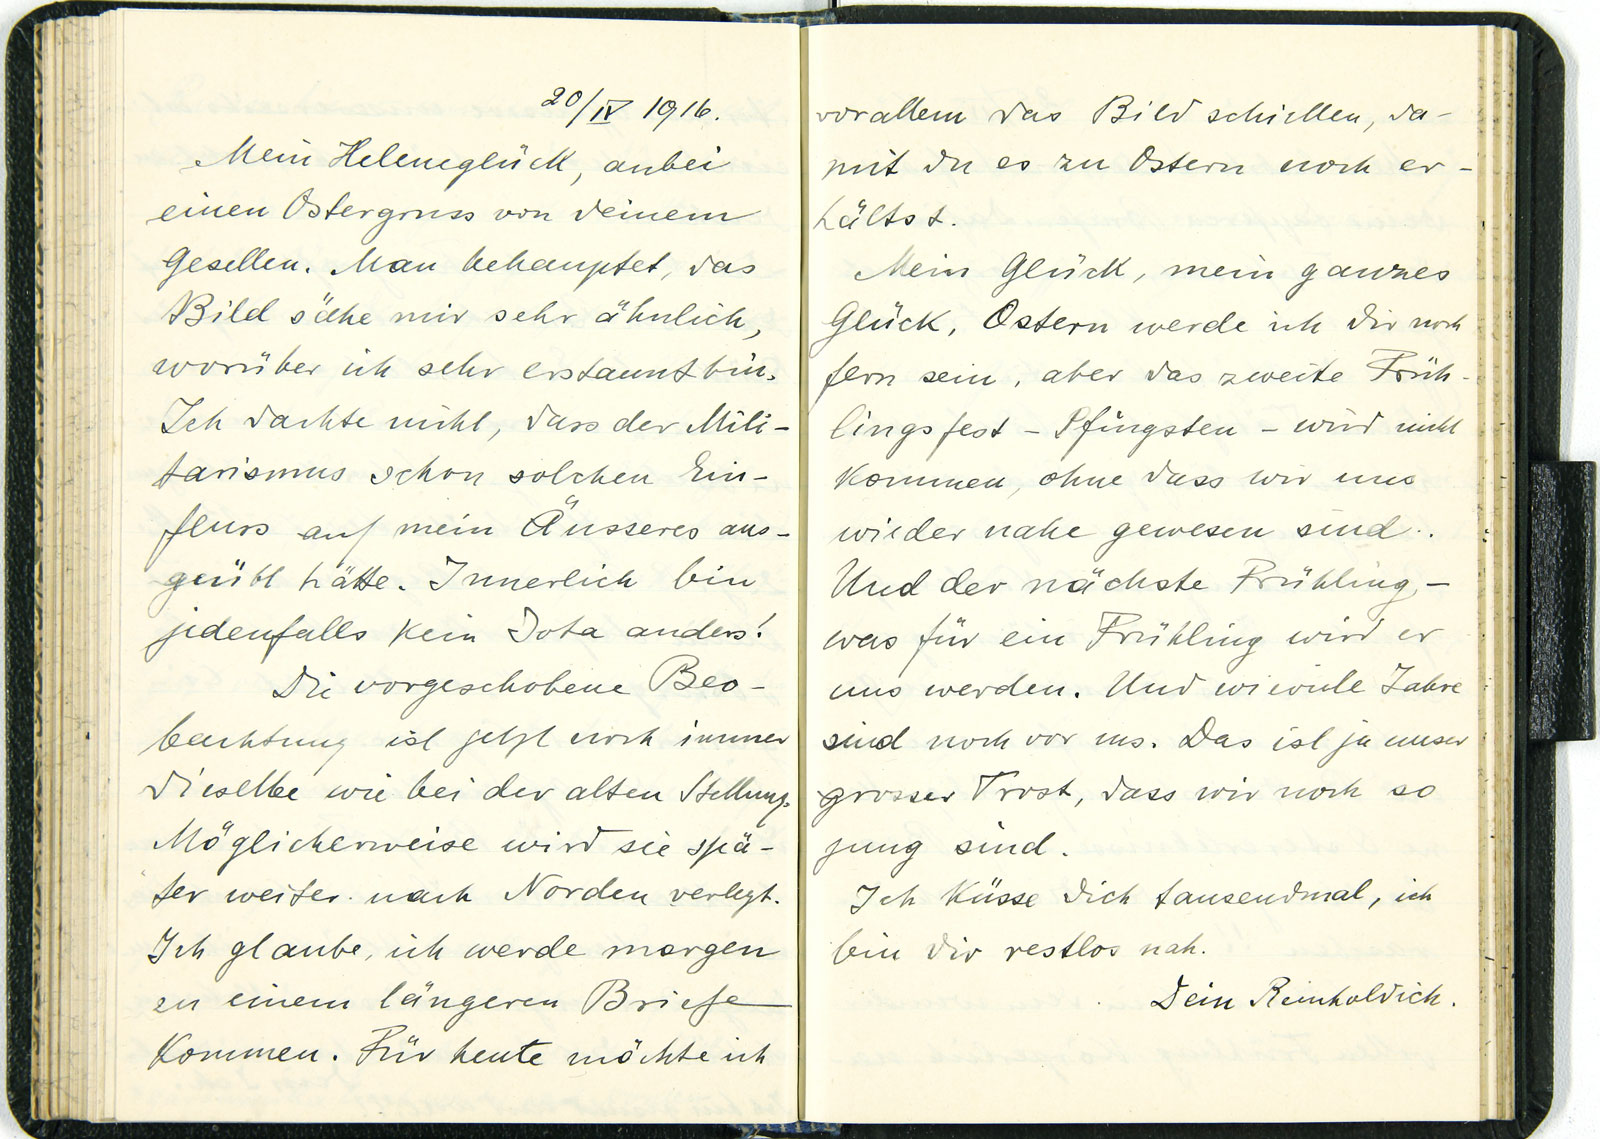 20/IV 1916.
Mein Heleneglück, anbei
einen Ostergruss von deinem
Gesellen. Man behauptet, das
Bild sähe mir sehr ähnlich,
worüber ich sehr erstaunt bin.
Ich dachte nicht, dass der Mili-
tarismus schon solchen Ein-
fluss auf mein Äusseres aus-
geübt hätte. Innerlich bin
jedenfalls kein Jota anders!
Die vorgeschobene Beo-
bachtung ist jetzt noch immer
dieselbe wie bei der alten Stellung.
Möglicherweise wird sie spä-
ter weiter nach Norden verlegt.
Ich glaube, ich werde morgen
zu einem längeren Briefe
kommen. Für heute möchte ich
vorallem das Bild schicken, da-
mit du es zu Ostern noch er-
hältst.
Mein Glück, mein ganzes
Glück, Ostern werde ich dir noch
fern sein, aber das zweite Früh-
lingsfest - Pfingsten - wird nicht
kommen, ohne dass wir uns
wieder nahe gewesen sind.
Und der nächste Frühling, -
was für ein Frühling wird er
uns werden. Und wieviele Jahre
sind noch vor uns. Das ist ja unser
grosser Trost, dass wir noch so
jung sind.
Ich küsse dich tausendmal, ich
bin dir restlos nah.
Dein Reinholdich.